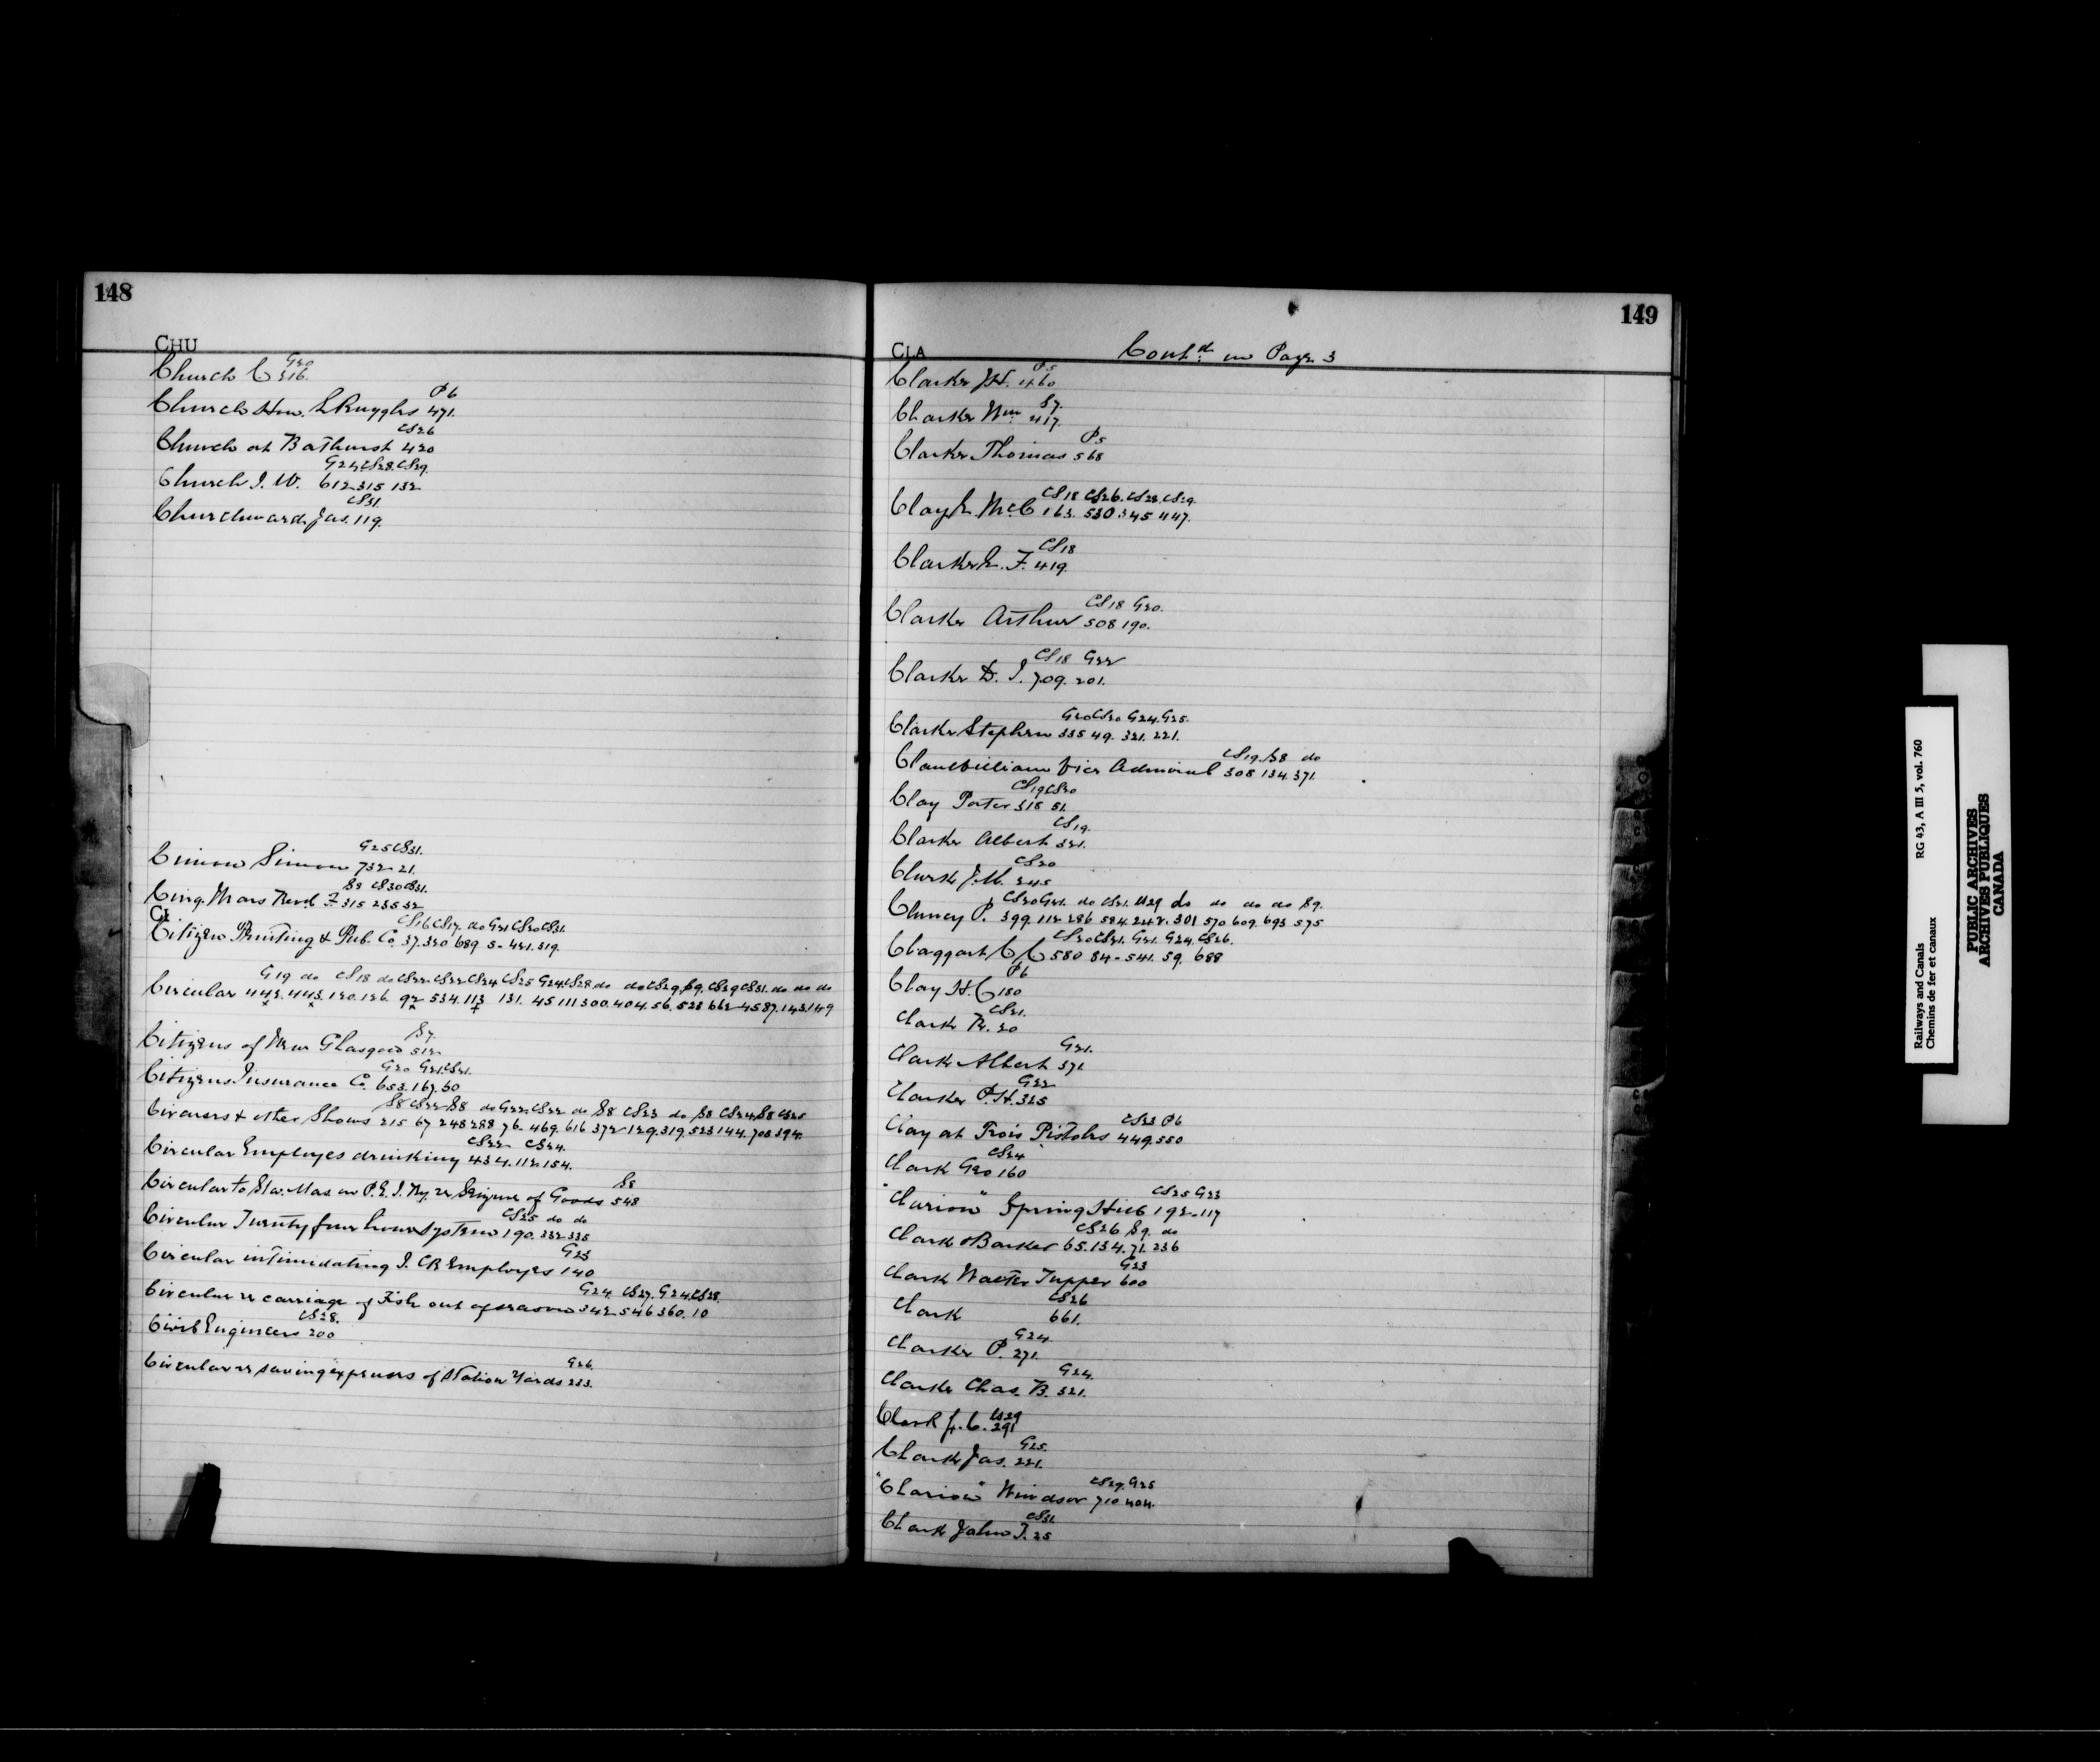 148
CHU
G20
Church C 316.
P6
Church Hon. L Ruggles 471.
CS26
Church at Bathurst 420
G24.CS28.CS29.
Church I. W. 612 315 132
CS31.
Churchward Jas. 119.
G25 CS31.
Cimon Simon 732 21.
S8 CS30 CS31.
Cinq. Mars Revd. F. 315 235 32
CI
CS16 CS17. do G21 CS30 CS31.
Citizen Printing & Pub. Co. 37.320 689 5. 421. 319.
G19 do CS18 do CS22 CS22 CS24 CS25 G24 CS28 do do CS29 S9. CS29 CS31. do do do
Circular 443. 443. 120. 126 92 534. 113 131. 45 111 300. 404. 56. 528 662 45 87. 143. 149
S7.
Citizens of New Glasgow 512
G20 G21. CS21.
Citizens Insurance Co. 653. 167. 60
S8 CS22 S8 do G22 CS22 do S8 CS23 do S8 CS24 S8 CS25
Circuses & other Shows 215 67 248 288 76. 469. 616 372 129. 319. 523 144. 708 394.
CS22 CS24.
Circular Employes drinking 434. 112. 154.
S8
Circular to Sta. Mas. on P.E.I. Ry. re Seizure of Goods 548
CS25 do do
Circular Twenty four hour system 190. 332 335
G23
Circular intimidating I. CR Employes 140
G24. CS27. G24. CS28.
Circular re carriage of Fish out of season 342 546 360. 10
CS28.
Civil Engineers 200
G26.
Circular re saving expenses of Station Yards 233.
149
CLA
Contd. on Page 3
P5
Clarke J.H. 460
S7.
Clarke Wm. 417.
P5
Clarke Thomas 568
CS18 CS26. CS28. CS29.
Clay E. McC 163. 530. 345 447.
CS18
Clarke E. F. 419.
CS18 G20.
Clarke Arthur 508 190.
CS18 G22
Clarke D. I. 709. 201.
G20 CS20 G24. G25.
Clarke Stephen 335 49. 321. 221.
CS19. S8 do
Clanwilliam Vice Admiral 308 134. 371.
CS19 CS20
Clay Porter 318 51.
CS19.
Clarke Albert 321.
CS20
Clark J.M. 245
CS20 G21. do CS21. CS29 do do do do S9.
Clancy P. 399. 112 286 584. 242. 301 570 609. 693 575
CS20 CS21. G21. G24. CS26.
Claggart C C 580 84 - 541. 59. 688
P6
Clay H. C 180
CS21.
Clark R. 20
G21.
Clark Albert 371.
G22
Clarke P.H. 325
CS23 P6
Clay at Trois Pistoles 449. 550
CS24
Clark Geo 160
CS25 G23
"Clarion" Spring Hill 192 - 117
CS26 S9. do
Clark & Barker 65. 134. 71. 236
G23
Clark Walter Tupper 600
CS26
Clark 661.
G24.
Clarke P. 271.
G24.
Clarke Chas. B. 321.
CS29
Clark J. C. 291
G25.
Clark Jas. 221.
CS29. G25
"Clarion" Windsor 710 404.
CS31.
Clark John T. 25
Railways and Canals RG 43, A III 5, vol. 760
Chemins de fer et canaux
PUBLIC ARCHIVES
ARCHIVES PUBLIQUES
CANADA